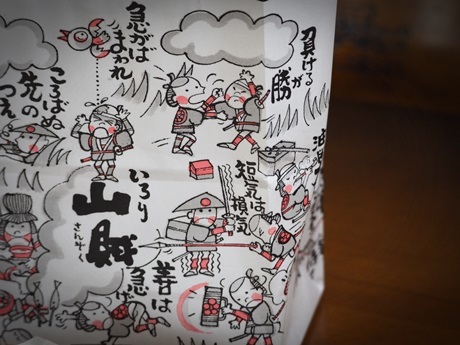 急がば
まわれ
負ける
が
勝
ころばぬ
先の
つえ
短気は
損気
いろり
山賊
さんぞく
善は
急げ